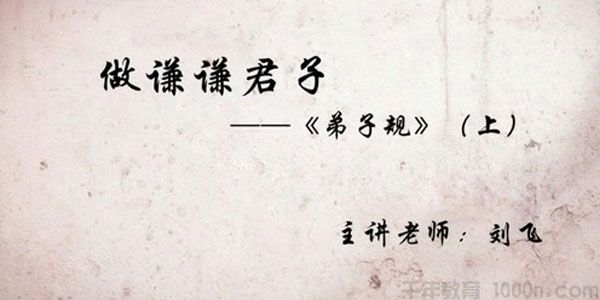 做谦谦君子
——《弟子规》（上）
主讲老师：刘飞
千年教育 1000n.com